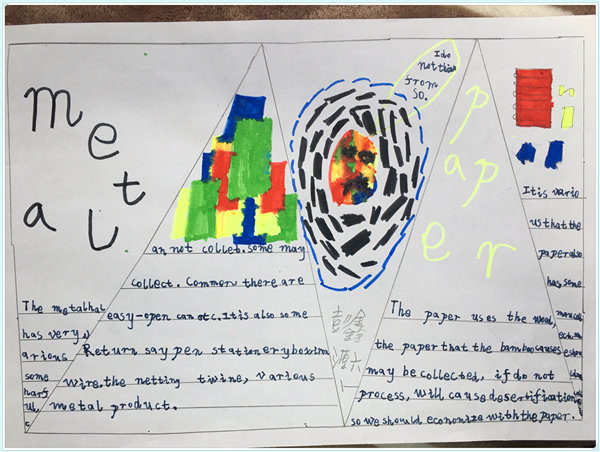 metal
The metal has
has very v
arious
some
harf
ul,
an not collet. some may
collect. Common there are
easy-open can etc. It is also some
Return say pen stationery box iron
wire, the netting twine, various
metal product.
I do
not think
from
so.
paper
The paper uses the wood,
the paper that the bamboo causes
may be collected, if do not
process, will cause desertification
so we should economize with the paper.
It is vario
us that the
paper also
has some